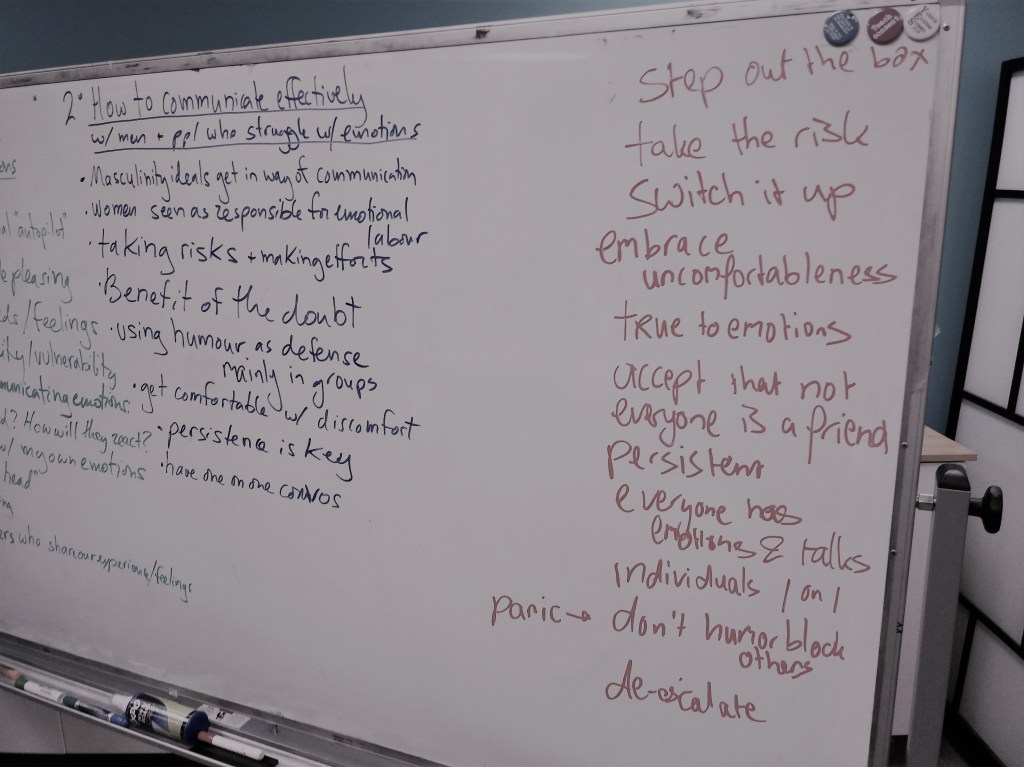 2. How to communicate effectively
w/ men + ppl who struggle w/ emotions
• Masculinity ideals get in way of communication
• Women seen as responsible for emotional
labour
• taking risks + making efforts
• Benefit of the doubt
• using humour as defense
mainly in groups
• get comfortable w/ discomfort
• persistence is key
• have one on one convos
"autopilot"
pleasing
/feelings
/vulnerability
emotions
? How will they react?
w/ my own emotions
head"
who share our experience/feelings
Step out the box
take the risk
Switch it up
embrace
uncomfortableness
true to emotions
accept that not
everyone is a friend
persistent
everyone has
emotions & talks
individuals 1 on 1
panic → don't humor block
others
de-escalate